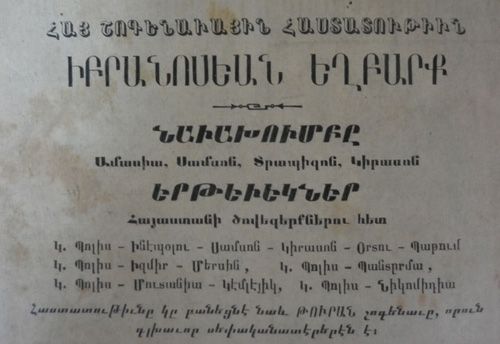 ՀԱՅ ՇՈԳԵՆԱՒԱՅԻՆ ՀԱՍՏԱՏՈՒԹԻՒՆ
ԻԲՐԱՆՈՍԵԱՆ ԵՂԲԱՐՔ
ՆԱՒԱԽՈՒՄԲԸ
Ամասիա, Սամսոն, Տրապիզոն, Կիրասոն
ԵՐԹԵՒԵԿՆԵՐ
Հայաստանի ծովեզերքներու հետ
Կ. Պոլիս - Ինէպօլու - Սամսոն - Կիրասոն - Օրտու - Պաթում
Կ. Պոլիս - Իզմիր - Մերսին, Կ. Պոլիս - Պանտըրմա,
Կ. Պոլիս - Մուտանիա - Կէմլէյիկ, Կ. Պոլիս - Նիկոմիդիա
Հաստատութիւնը կը բանեցնէ նաև ԹՈՒՐԱՆ շոգենաւը, որուն
գլխաւոր սեփականատէրերէն է։